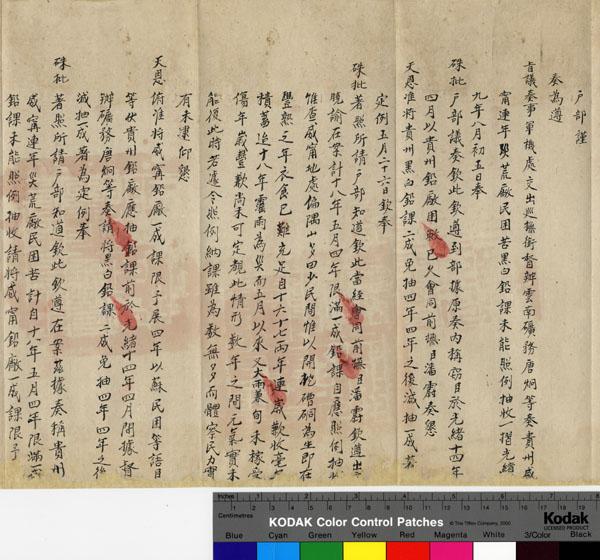 戶部謹
奏為遵
旨議奏事軍機處交出巡撫銜督辦雲南礦務唐炯等奏貴州威
甯連年災荒廠民困苦黑白鉛課未能照例抽收一摺光緒
九年八月初五日奉
硃批戶部議奏欽此欽遵到部據原奏內稱竊臣於光緒十四年
四月以貴州鉛廠困敝已久會同前撫臣潘霨奏懇
天恩准將貴州黑白鉛課二成免抽四年四年之後減抽一成著
定例五月二十六日欽奉
硃批著照所請戶部知道欽此當經會同前撫臣潘霨欽遵出
曉諭在案計十八年五月四年限滿一成鉛課自應照例抽
惟查威甯地處偏隅山多田少民間惟以開挖礦硐為生即在
豐熟之年衣食已難充足自十六十七兩年連歲歉收毫
積蓄迨十八年霪雨為災而五月以來又大雨兼旬未稼受
傷年歲豐歉尚未可定覩此情形數年之間元氣實未
能復此時若遽令照例納課雖為數無多而體察民力實
有未逮仰懇
天恩俯准將威甯鉛廠一成課限予展四年以蘇民困等語臣
等伏查貴州鉛廠應抽鉛課前於光緒十四年四月間據督
辦礦務唐炯等奏請將黑白鉛課二成免抽四年四年之後
減抽一成著為定例奉
硃批著照所請戶部知道欽此欽遵在案茲據奏稱貴州
威甯連年災荒廠民困苦計自十八年五月四年限滿一
鉛課未能照例抽收請將威甯鉛廠一成課限予
Inches 1 2 3 4 5 6 7 8
Centimetres 1 2 3 4 5 6 7 8 9 10 11 12 13 14 15 16 17 18 19
KODAK Color Control Patches
© The Tiffen Company, 2000
Kodak
LICENSED PRODUCT
Blue Cyan Green Yellow Red Magenta White 3/Color Black